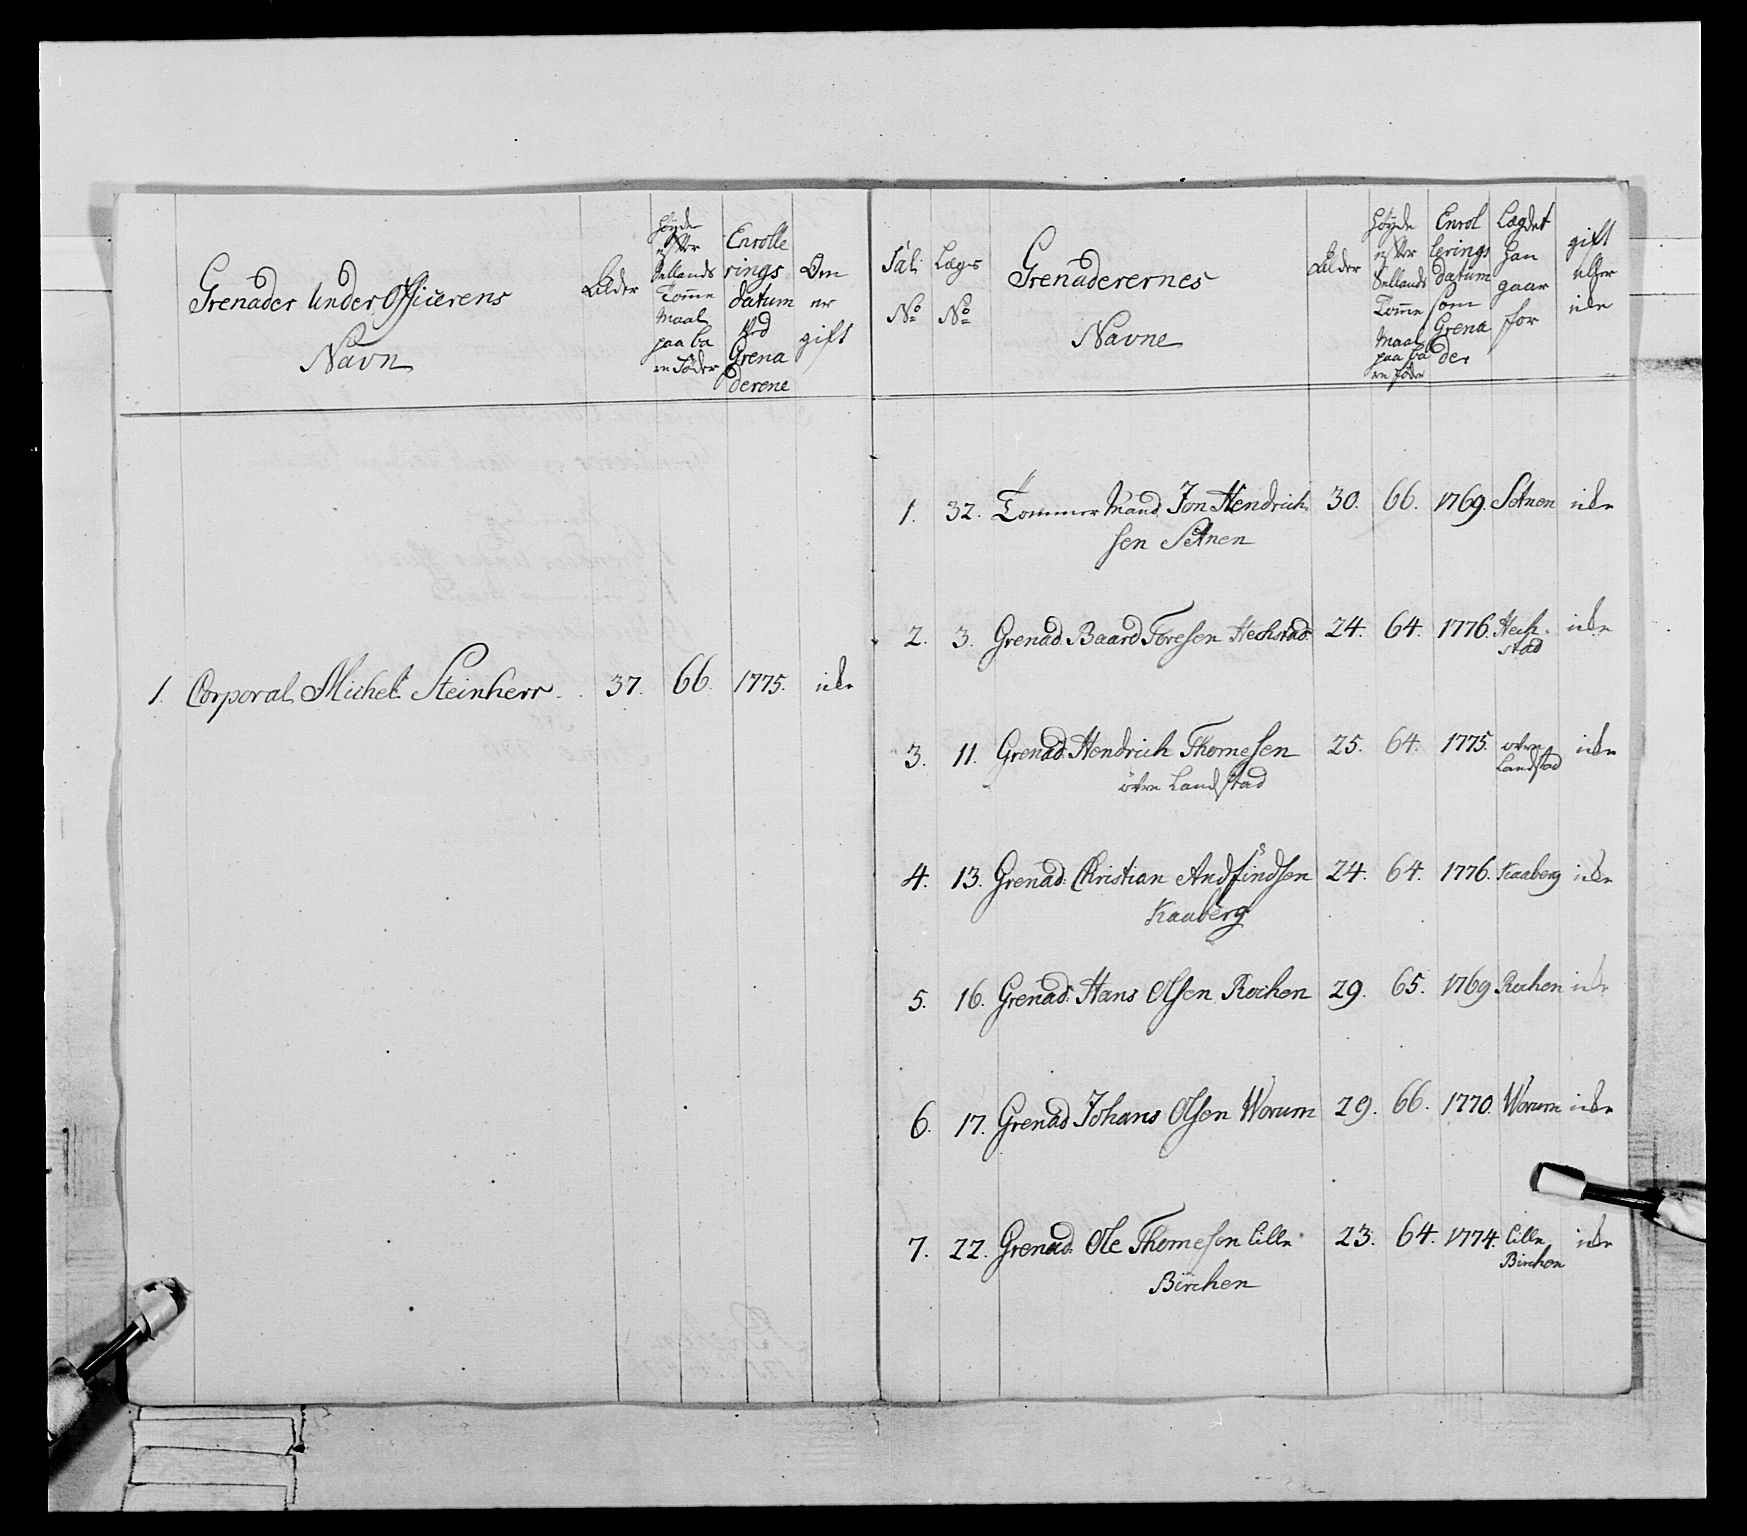 Grenader Under Officerens
Navn
Alder
Høyde
efter
Sellands
Tomme
Maal
paa ba
re Föder
Enrolle
rings
datum
ved
Grena
derene
Om
er
gift
1. Corporal Michel Steinherr. 37. 66. 1775. icke
Tal: No
Lægs No
Grenaderernes
Navne
Alder
Høyde
efter
Sellands
Tomme
Maal
paa ba
re föder
Enrol
lerings
datum
som
Grena
der
Lægdet
han
gaar
for
gift
eller
icke
1. 32. Tömmer Mand Jon Hendrich 30. 66. 1769. Setnen icke
sen Setnen
2. 3. Grenad. Baard Toresen Hechstad 24. 64. 1776. Hech icke
stad
3. 11. Grenad. Hendrich Thomesen 25. 64. 1775. övre icke
övre Landstad Landstad
4. 13. Grenad: Christian Andfindsen 24. 64. 1776. Kaaberg icke
Kaaberg
5. 16. Grenad: Hans Olsen Rochen 29. 65. 1769 Rochen icke
6. 17. Grenad Johans Olsen Worum 29. 66. 1770. Worum icke
7. 22. Grenad. Ole Thomesen Lille 23. 64. 1774. Lille icke
Birchen Birchen